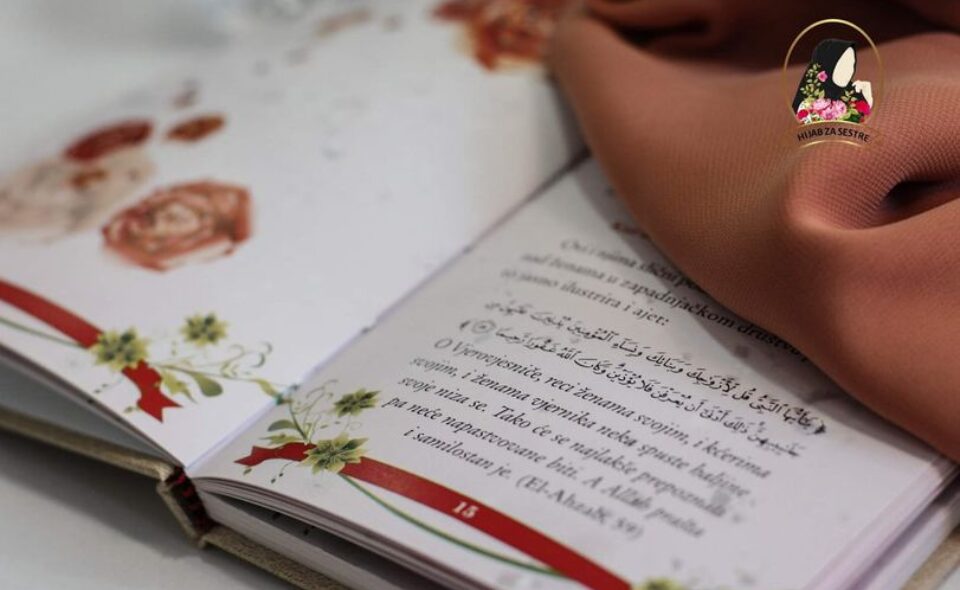 HIJAB ZA SESTRE
Ovi i njima slični
nad ženama u zapadnjačkom društvu,
to jasno ilustrira i ajet:
يَا أَيُّهَا النَّبِيُّ قُل لِّأَزْوَاجِكَ وَبَنَاتِكَ وَنِسَاءِ الْمُؤْمِنِينَ يُدْنِينَ عَلَيْهِنَّ مِن
جَلَابِيبِهِنَّ ذَٰلِكَ أَدْنَىٰ أَن يُعْرَفْنَ فَلَا يُؤْذَيْنَ وَكَانَ اللَّهُ غَفُورًا رَّحِيمًا
O Vjerovjesniče, reci ženama svojim, i kćerima
svojim, i ženama vjernika neka spuste haljine
svoje niza se. Tako će se najlakše prepoznati
pa neće napastvovane biti. A Allah prašta
i samilostan je. (El-Ahzab, 59)
15